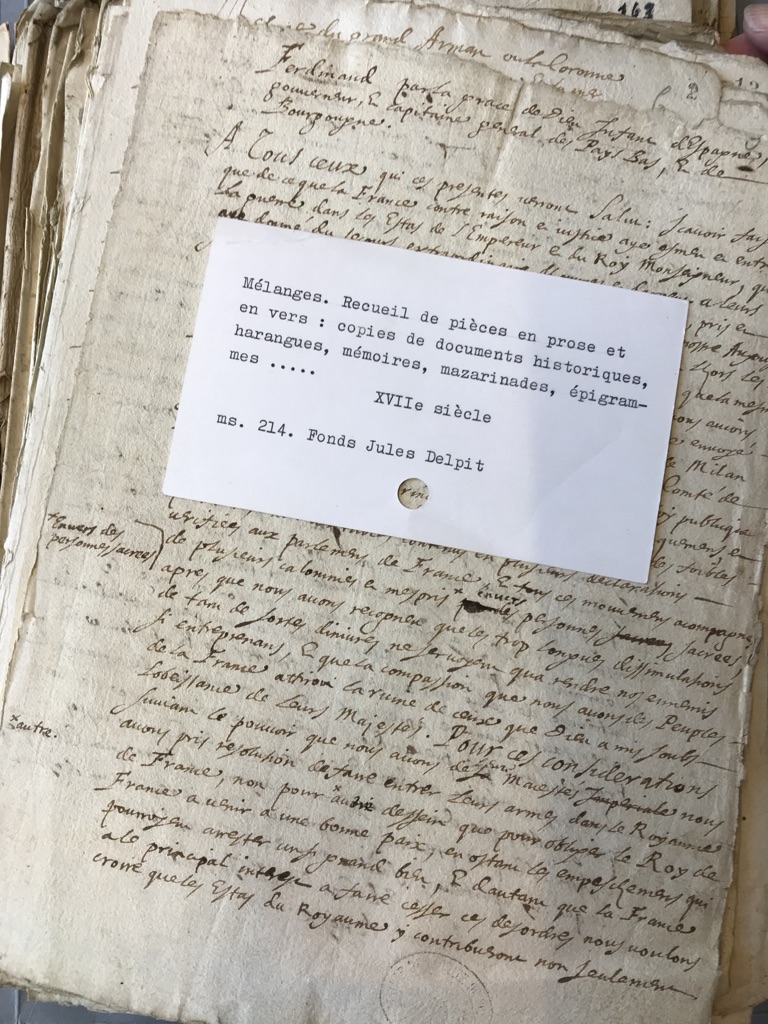 163
du grand Arman ou la Coronne
2
12
Ferdinand par la grace de Dieu Infant d'Espagne,
gouverneur, & capitaine general des Pays Bas, & de
Bourgougne.
A Tous ceux qui ces presentes verront Salut: scavoir
que de ce que la France contre raison et iustice aye esmeu et
la guerre dans les Estas de l'Empereur et du Roy Monseigneur,
a leurs
pris
Mélanges. Recueil de pièces en prose et
en vers : copies de documents historiques,
harangues, mémoires, mazarinades, épigram-
mes .....
XVIIe siècle
ms. 214. Fonds Jules Delpit
que la
envoyé
Milan
Comte de
publique
foibles
*Envers des
personnes sacrees
verifiees aux parlemens de France, & tous ces mouvemens acompagnes
de plusieurs calomnies et mespris *envers personnes sacrees,
apres que nous avons recogneu que les trop longues dissimulations
de tant de sortes diniures ne servoyent qua rendre nos ennemis
si entreprenans, & que la compassion que nous avons des Peuples
de la France attiroit la ruine de ceux que Dieu a mis soubs
lobeissance de leurs Majestes. Pour ces considerations
suivant le pouvoir que nous avons de Maiestes Imperiale nous
*autre.
avons pris resolution de faire entrer leurs armes dans le Royaume
de France, non pour *autre dessein que pour obliger le Roy de
France a venir a une bonne paix, en ostant les empeschemens qui
pourroyent arrester un si grand bien, & dautant que la France
a le principal interest a faire cesser ces desordres nous voulons
croire que les Estas du Royaume y contribueront non seulement